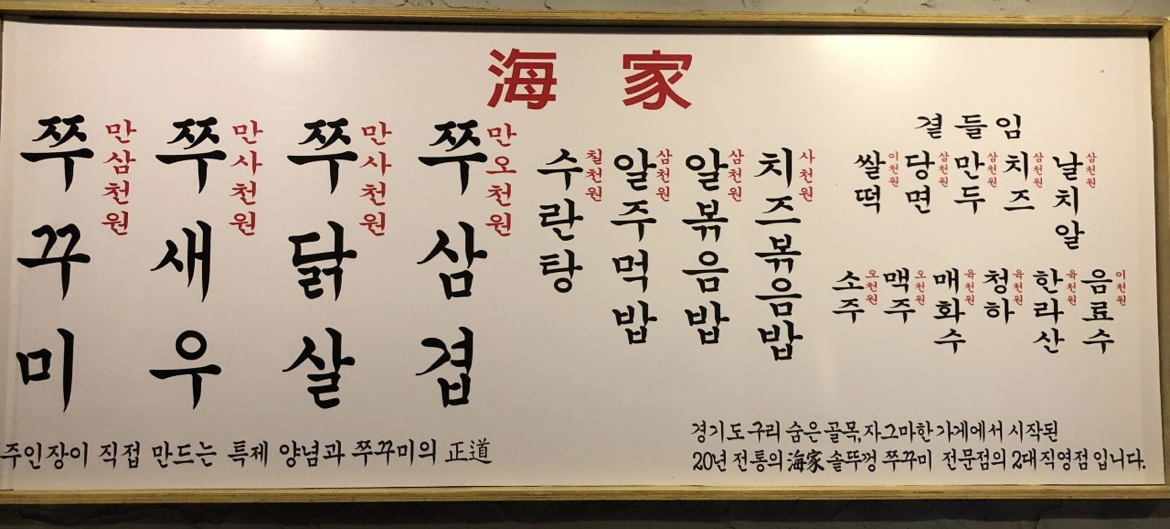 海家
쭈꾸미 만삼천원
쭈새우 만사천원
쭈닭살 만사천원
쭈삼겹 만오천원
수란탕 칠천원
알주먹밥 삼천원
알볶음밥 삼천원
치즈볶음밥 사천원
곁들임
쌀떡 이천원
당면 삼천원
만두 삼천원
치즈 삼천원
날치알 삼천원
소주 오천원
맥주 오천원
매화수 육천원
청하 육천원
한라산 육천원
음료수 이천원
주인장이 직접 만드는 특제 양념과 쭈꾸미의 正道
경기도 구리 숨은 골목, 자그마한 가게에서 시작된
20년 전통의 海家 솥뚜껑 쭈꾸미 전문점의 2대 직영점 입니다.